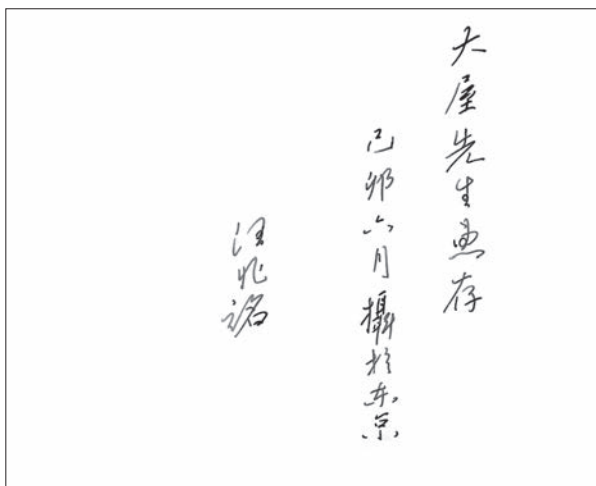 大屋先生惠存
己卯六月攝於东京
汪兆銘